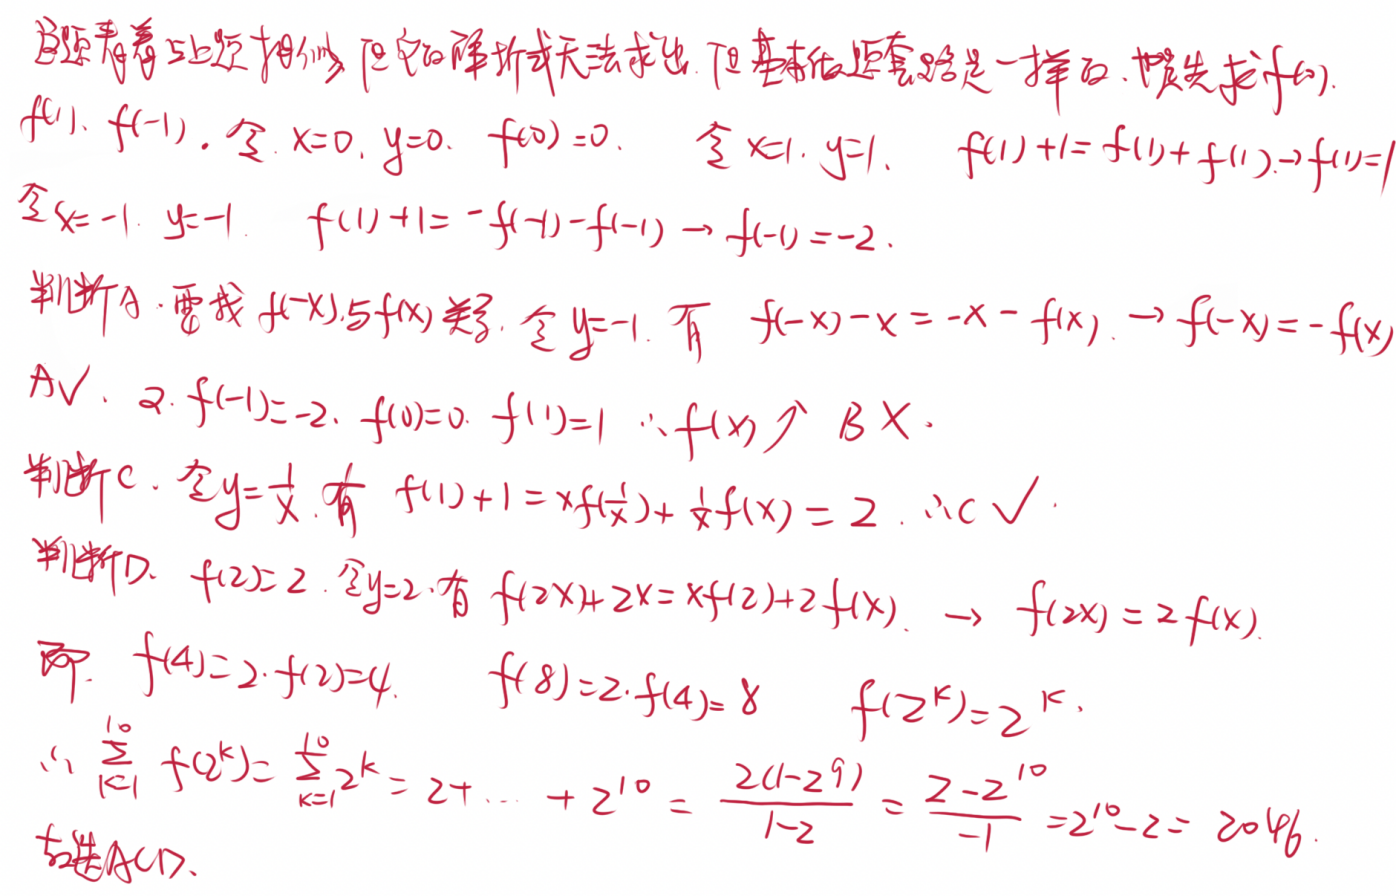 自题看着与上题相似,但它的解析式无法求出.但基本做题套路是一样的.愤先求f(0).
f(1)、f(-1). 令 x=0. y=0. f(0)=0. 令x=1. y=1. f(1)+1=f(1)+f(1).→f(1)=1
令x=-1. y=-1. f(1)+1=-f(-1)-f(-1)→f(-1)=-2.
判断A.要找f(-x)与f(x)关系.令y=-1.有 f(-x)-x=-x-f(x).→f(-x)=-f(x)
A√. 2.f(-1)=-2. f(0)=0. f(1)=1 ∴f(x)↗ B×.
判断C.令y=1/x.有 f(1)+1=xf(1/x)+1/x f(x)=2.∴C√.
判断D. f(2)=2.令y=2.有 f(2x)+2x=xf(2)+2f(x). → f(2x)=2f(x).
即. f(4)=2·f(2)=4. f(8)=2·f(4)=8 f(2^k)=2^k.
∴ \sum_{k=1}^{10} f(2^k)=\sum_{k=1}^{10} 2^k=2+...+2^{10}=\frac{2(1-2^9)}{1-2}=\frac{2-2^{10}}{-1}=2^{10}-2=2046.
故选ACD.